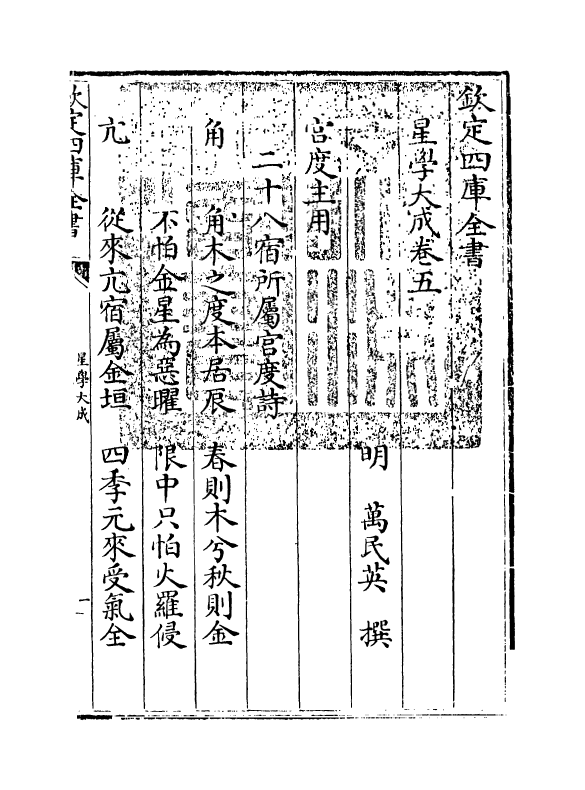 欽定四庫全書
星學大成卷五
明 萬民英 撰
宫度主用
二十八宿所屬宫度詩
角 角木之度本居辰 春則木兮秋則金
不怕金星為惡曜 限中只怕火羅侵
亢 從來亢宿屬金垣 四季元來受氣全
欽定四庫全書
星學大成
一